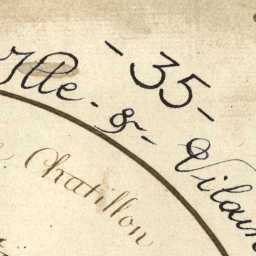 - 35 -
Ille - & - Vilain
Chatillon